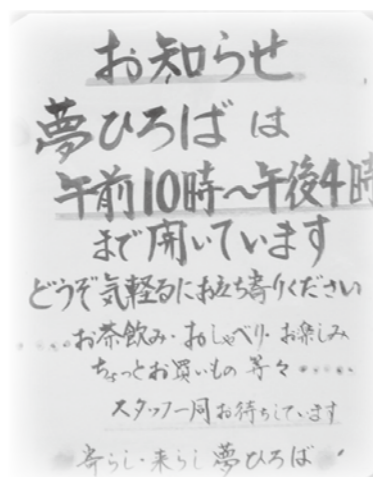 お知らせ
夢ひろばは
午前10時〜午後4時
まで開いています
どうぞ気軽るにお立ち寄りください
・・・・・お茶飲み・おしゃべり・お楽しみ
ちょっとお買いもの 等々・・・・・
スタッフ一同お待ちしています
寄らし・来らし夢ひろば